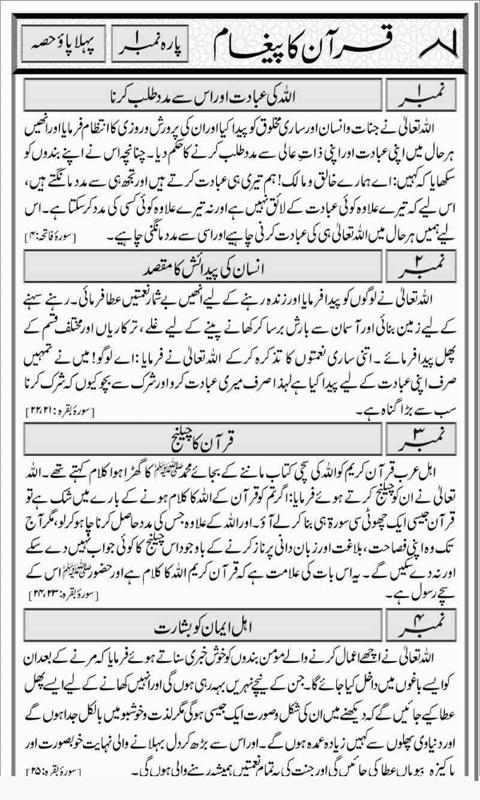 ۸
قرآن کا پیغام
پارہ نمبر ۱
پہلا پاؤ حصہ
نمبر ۱
اللہ کی عبادت اور اس سے مدد طلب کرنا
اللہ تعالیٰ نے جنات و انسان اور ساری مخلوق کو پیدا کیا اور ان کی پرورش و روزی کا انتظام فرمایا اور انھیں
ہر حال میں اپنی عبادت اور اپنی ذاتِ عالی سے مدد طلب کرنے کا حکم دیا۔ چنانچہ اس نے اپنے بندوں کو
سکھایا کہ کہیں: اے ہمارے خالق و مالک! ہم تیری ہی عبادت کرتے ہیں اور تجھ ہی سے مدد مانگتے ہیں،
اس لیے کہ تیرے علاوہ کوئی عبادت کے لائق نہیں ہے اور نہ تیرے علاوہ کوئی کسی کی مدد کر سکتا ہے۔ اس
لیے ہمیں ہر حال میں اللہ تعالیٰ ہی کی عبادت کرنی چاہیے اور اسی سے مدد مانگنی چاہیے۔ [سورۂ فاتحہ: ۴]
نمبر ۲
انسان کی پیدائش کا مقصد
اللہ تعالیٰ نے لوگوں کو پیدا فرمایا اور زندہ رہنے کے لیے انھیں بے شمار نعمتیں عطا فرمائی۔ رہنے سہنے
کے لیے زمین بنائی اور آسمان سے بارش برسا کر کھانے پینے کے لیے غلے، ترکاریاں اور مختلف قسم کے
پھل پیدا فرمائے۔ اتنی ساری نعمتوں کا تذکرہ کر کے اللہ تعالیٰ نے فرمایا: اے لوگو! میں نے تمہیں
صرف اپنی عبادت کے لیے پیدا کیا ہے لہٰذا صرف میری عبادت کرو اور شرک سے بچو کیوں کہ شرک کرنا
سب سے بڑا گناہ ہے۔ [سورۂ بقرہ: ۲۲،۲۱]
نمبر ۳
قرآن کا چیلنج
اہل عرب قرآن کریم کو اللہ کی سچی کتاب ماننے کے بجائے محمد ﷺ کا گھڑا ہوا کلام کہتے تھے۔ اللہ
تعالیٰ نے ان کو چیلنج کرتے ہوئے فرمایا: اگر تم کو قرآن کے اللہ کا کلام ہونے کے بارے میں شک ہے تو
قرآن جیسی ایک چھوٹی سی سورۃ ہی بنا کر لے آؤ۔ اور اللہ کے علاوہ جس کی مدد حاصل کرنا چاہو کر لو، مگر آج
تک وہ اپنی فصاحت، بلاغت اور زبان دانی پر ناز کرنے کے باوجود اس چیلنج کا کوئی جواب نہیں دے سکے
اور نہ دے سکیں گے۔ یہ اس بات کی علامت ہے کہ قرآن کریم اللہ کا کلام ہے اور حضور ﷺ اس کے
سچے رسول ہے۔ [سورۂ بقرہ: ۲۴،۲۳]
نمبر ۴
اہل ایمان کو بشارت
اللہ تعالیٰ نے اچھے اعمال کرنے والے مومن بندوں کو خوش خبری سناتے ہوئے فرمایا کہ مرنے کے بعد ان
کو ایسے باغوں میں داخل کیا جائے گا۔ جن کے نیچے نہریں بہہ رہی ہوں گی اور انہیں کھانے کے لیے ایسے پھل
عطا کیے جائیں گے کہ دیکھنے میں ان کی شکل و صورت ایک جیسی ہوگی مگر لذت و خوشبو میں بالکل جدا ہوں گے
اور دنیاوی پھلوں سے کہیں زیادہ عمدہ ہوں گے۔ اور اس سے بڑھ کر دل بہلانے والی نہایت خوبصورت اور
پاکیزہ بیویاں عطا کی جائیں گی اور جنت کی یہ تمام نعمتیں ہمیشہ رہنے والی ہوں گی۔ [سورۂ بقرہ: ۲۵]